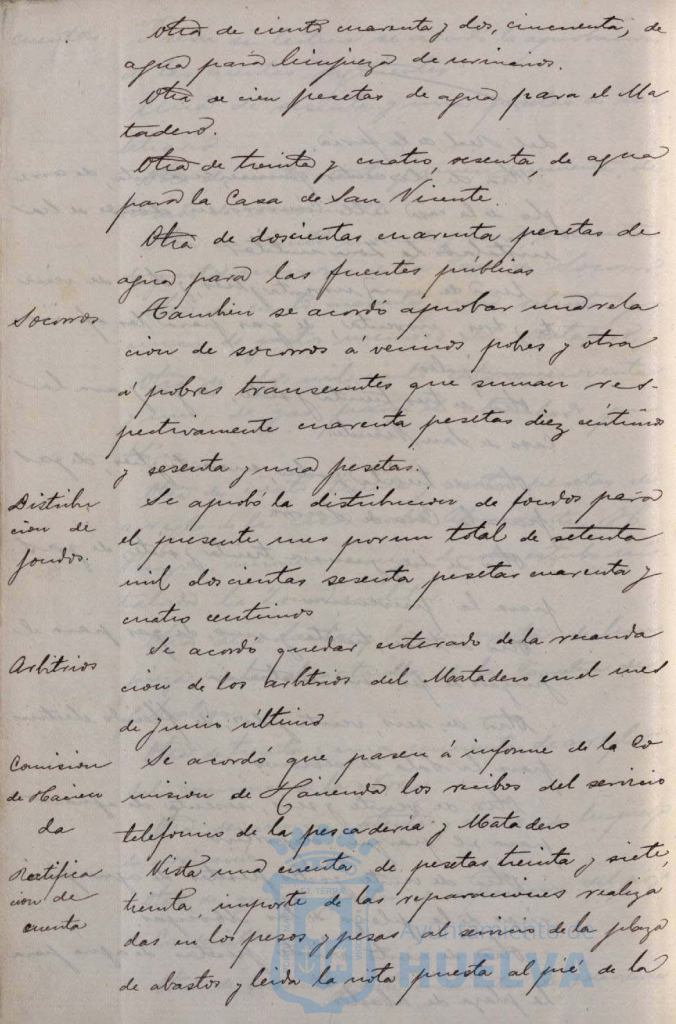 Otra de ciento cuarenta y dos, cincuenta, de
agua para limpieza de urinarios.
Otra de cien pesetas de agua para el Ma
tadero.
Otra de treinta y cuatro, sesenta, de agua
para la Casa de San Vicente.
Otra de doscientas cuarenta pesetas de
agua para las fuentes públicas
Socorros
Tambien se acordó aprobar una rela
cion de socorros á vecinos pobres y otra
á pobres transeuntes que suman res-
pectivamente cuarenta pesetas diez céntimos
y sesenta y una pesetas.
Distribu
cion de
fondos.
Se aprobó la distribucion de fondos para
el presente mes por un total de setenta
mil doscientas sesenta pesetas cuarenta y
cuatro centimos
Arbitrios
Se acordó quedar enterado de la recauda
cion de los arbitrios del Matadero en el mes
de junio último
Comision
de Hacien
da
Se acordó que pasen á informe de la Co
mision de Hacienda los recibos del servicio
telefonico de la pescaderia y Matadero
Rectifica
cion de
cuenta
Vista una cuenta de pesetas treinta y siete,
treinta, importe de las reparaciones realiza
das en los pesos y pesas al servicio de la plaza
de abastos y leida la nota puesta al pié de la
Ayuntamiento de
HUELVA